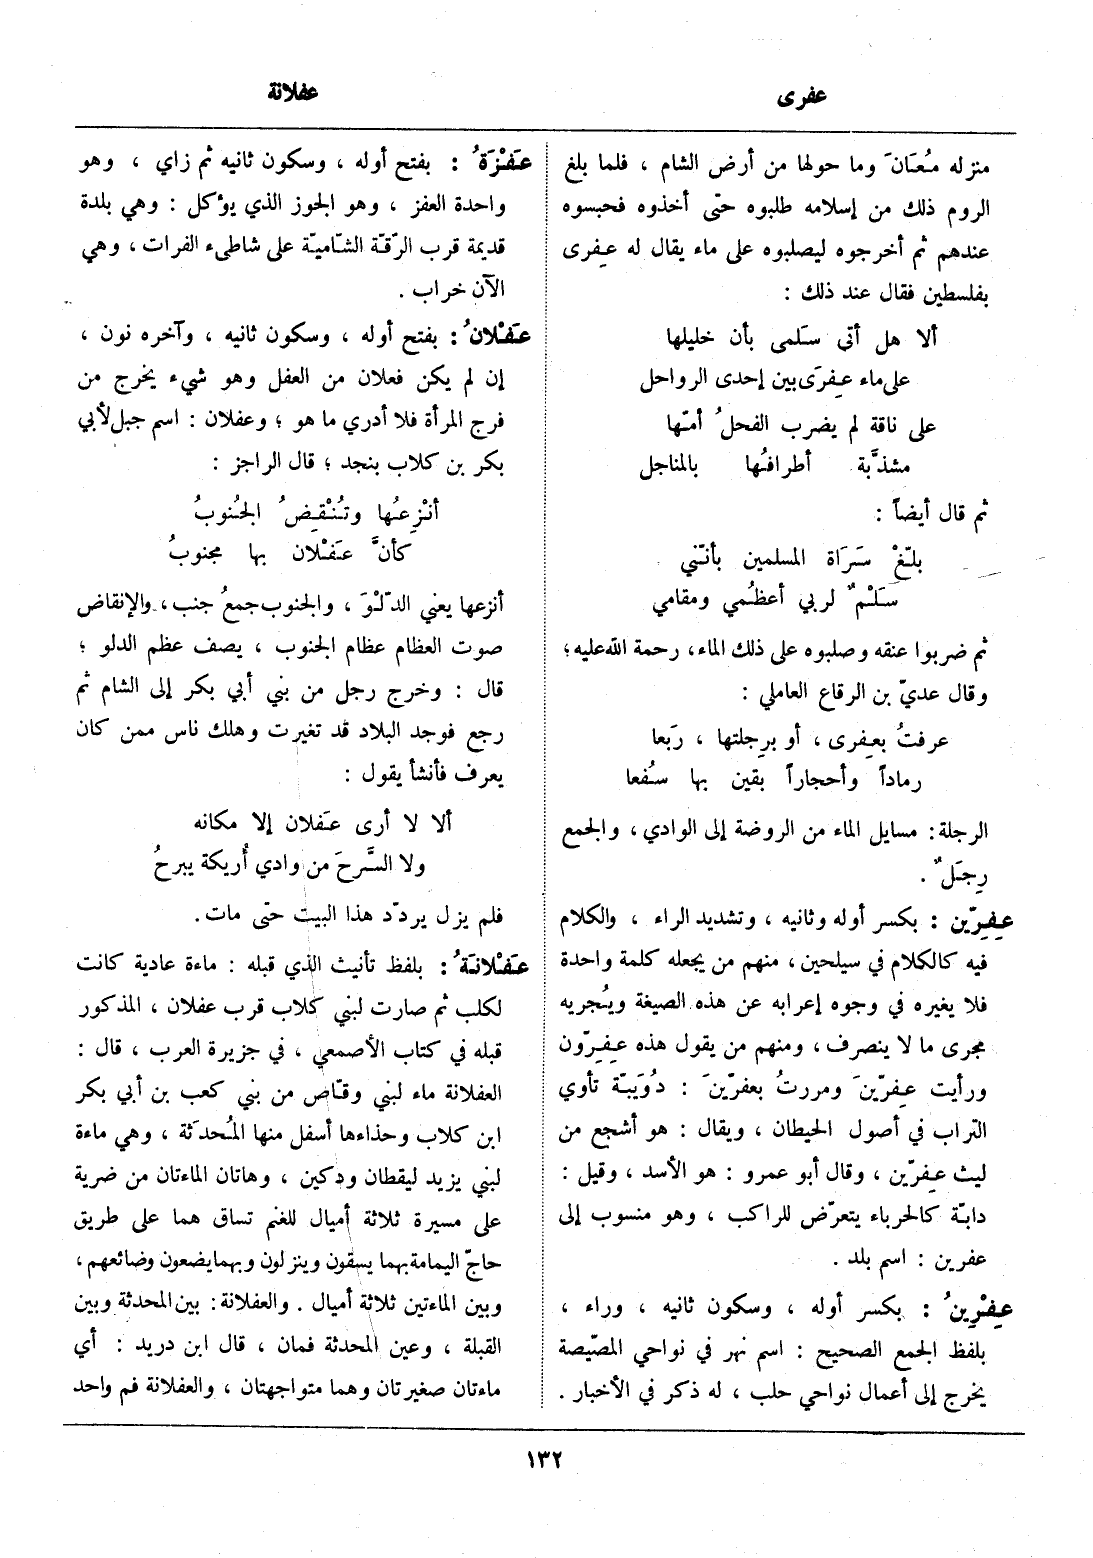 عفرى
عفلانة
منزله مُعَانَ وما حولها من أرض الشام ، فلما بلغ
الروم ذلك من إسلامه طلبوه حتى أخذوه فحبسوه
عندهم ثم أخرجوه ليصلبوه على ماء يقال له عِفرى
بفلسطين فقال عند ذلك :
ألا هل أتى سَلمى بأن خليلها
على ماء عِفرَى بين إحدى الرواحل
على ناقة لم يضرب الفحلُ أمّها
مشذَّبة أطرافُها بالمناجل
ثم قال أيضاً :
بلّغْ سَرَاة المسلمين بأنّني
سَلْمٌ لربي أعظُمي ومقامي
ثم ضربوا عنقه وصلبوه على ذلك الماء، رحمة الله عليه؛
وقال عديّ بن الرقاع العاملي :
عرفتُ بعِفرى ، أو برِجلتها ، رَبعا
رماداً وأحجاراً بقين بها سُفعا
الرجلة : مسايل الماء من الروضة إلى الوادي ، والجمع
رِجَلٌ .
عِفِرِّين : بكسر أوله وثانيه ، وتشديد الراء ، والكلام
فيه كالكلام في سيلحين ، منهم من يجعله كلمة واحدة
فلا يغيره في وجوه إعرابه عن هذه الصيغة ويُجريه
مجرى ما لا ينصرف ، ومنهم من يقول هذه عِفِرّون
ورأيت عِفرّينَ ومررتُ بعفرّينَ : دُوَيبّة تأوي
التراب في أصول الحيطان ، ويقال : هو أشجع من
ليث عِفرّين ، وقال أبو عمرو : هو الأسد ، وقيل :
دابّة كالحرباء يتعرّض للراكب ، وهو منسوب إلى
عفرين : اسم بلد .
عِفْرِينُ : بكسر أوله ، وسكون ثانيه ، وراء ،
بلفظ الجمع الصحيح : اسم نهر في نواحي المصّيصة
يخرج إلى أعمال نواحي حلب ، له ذكر في الأخبار .
عَفْزَةُ : بفتح أوله ، وسكون ثانيه ثم زاي ، وهو
واحدة العفز ، وهو الجوز الذي يؤكل : وهي بلدة
قديمة قرب الرّقّة الشّاميّة على شاطىء الفرات ، وهي
الآن خراب .
عَفْلان ُ : بفتح أوله ، وسكون ثانيه ، وآخره نون ،
إن لم يكن فعلان من العفل وهو شيء يخرج من
فرج المرأة فلا أدري ما هو ؛ وعفلان : اسم جبل لأبي
بكر بن كلاب بنجد ؛ قال الراجز :
أنْزِعُها وتُنْقِضُ الجُنوبُ
كأنَّ عَفْلان بها مجنوبُ
أنزعها يعني الدّلْوَ ، والجنوب جمعُ جنب ، والإنقاض
صوت العظام عظام الجنوب ، يصف عظم الدلو ؛
قال : وخرج رجل من بني أبي بكر إلى الشام ثم
رجع فوجد البلاد قد تغيرت وهلك ناس ممن كان
يعرف فأنشأ يقول :
ألا لا أرى عَفلان إلا مكانه
ولا السَّرحَ من وادي أُريكة يبرحُ
فلم يزل يردّد هذا البيت حتى مات .
عَفْلانَةُ : بلفظ تأنيث الذي قبله : ماءة عادية كانت
لكلب ثم صارت لبني كلاب قرب عفلان ، المذكور
قبله في كتاب الأصمعي ، في جزيرة العرب ، قال :
العفلانة ماء لبني وقّاص من بني كعب بن أبي بكر
ابن كلاب وحذاءها أسفل منها المُحدَثة ، وهي ماءة
لبني يزيد ليقطان ودكين ، وهاتان الماءتان من ضرية
على مسيرة ثلاثة أميال للغنم تساق هما على طريق
حاجّ اليمامة بهما يسقون وينزلون وبهما يضعون وضائعهم ،
وبين الماءتين ثلاثة أميال . والعفلانة : بين المحدثة وبين
القبلة ، وعين المحدثة فمان ، قال ابن دريد : أي
ماءتان صغيرتان وهما متواجهتان ، والعفلانة فم واحد
١٣٢